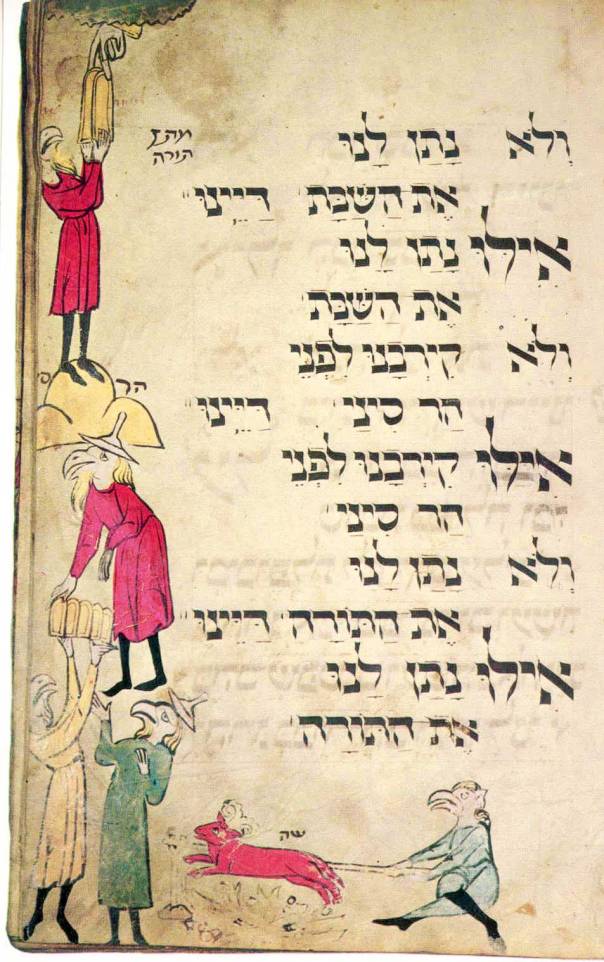 וְלֹא נָתַן לָנוּ
מתן
תורה
אֶת הַשַּׁבָּת דַּיֵּינוּ
אִילּוּ נָתַן לָנוּ
אֶת הַשַּׁבָּת
וְלֹא קֵירְבָנוּ לִפְנֵי
הר
הַר סִינַי דַּיֵּינוּ
אִילּוּ קֵירְבָנוּ לִפְנֵי
הַר סִינַי
וְלֹא נָתַן לָנוּ
אֶת הַתּוֹרָה דַּיֵּינוּ
אִילּוּ נָתַן לָנוּ
אֶת הַתּוֹרָה
שה